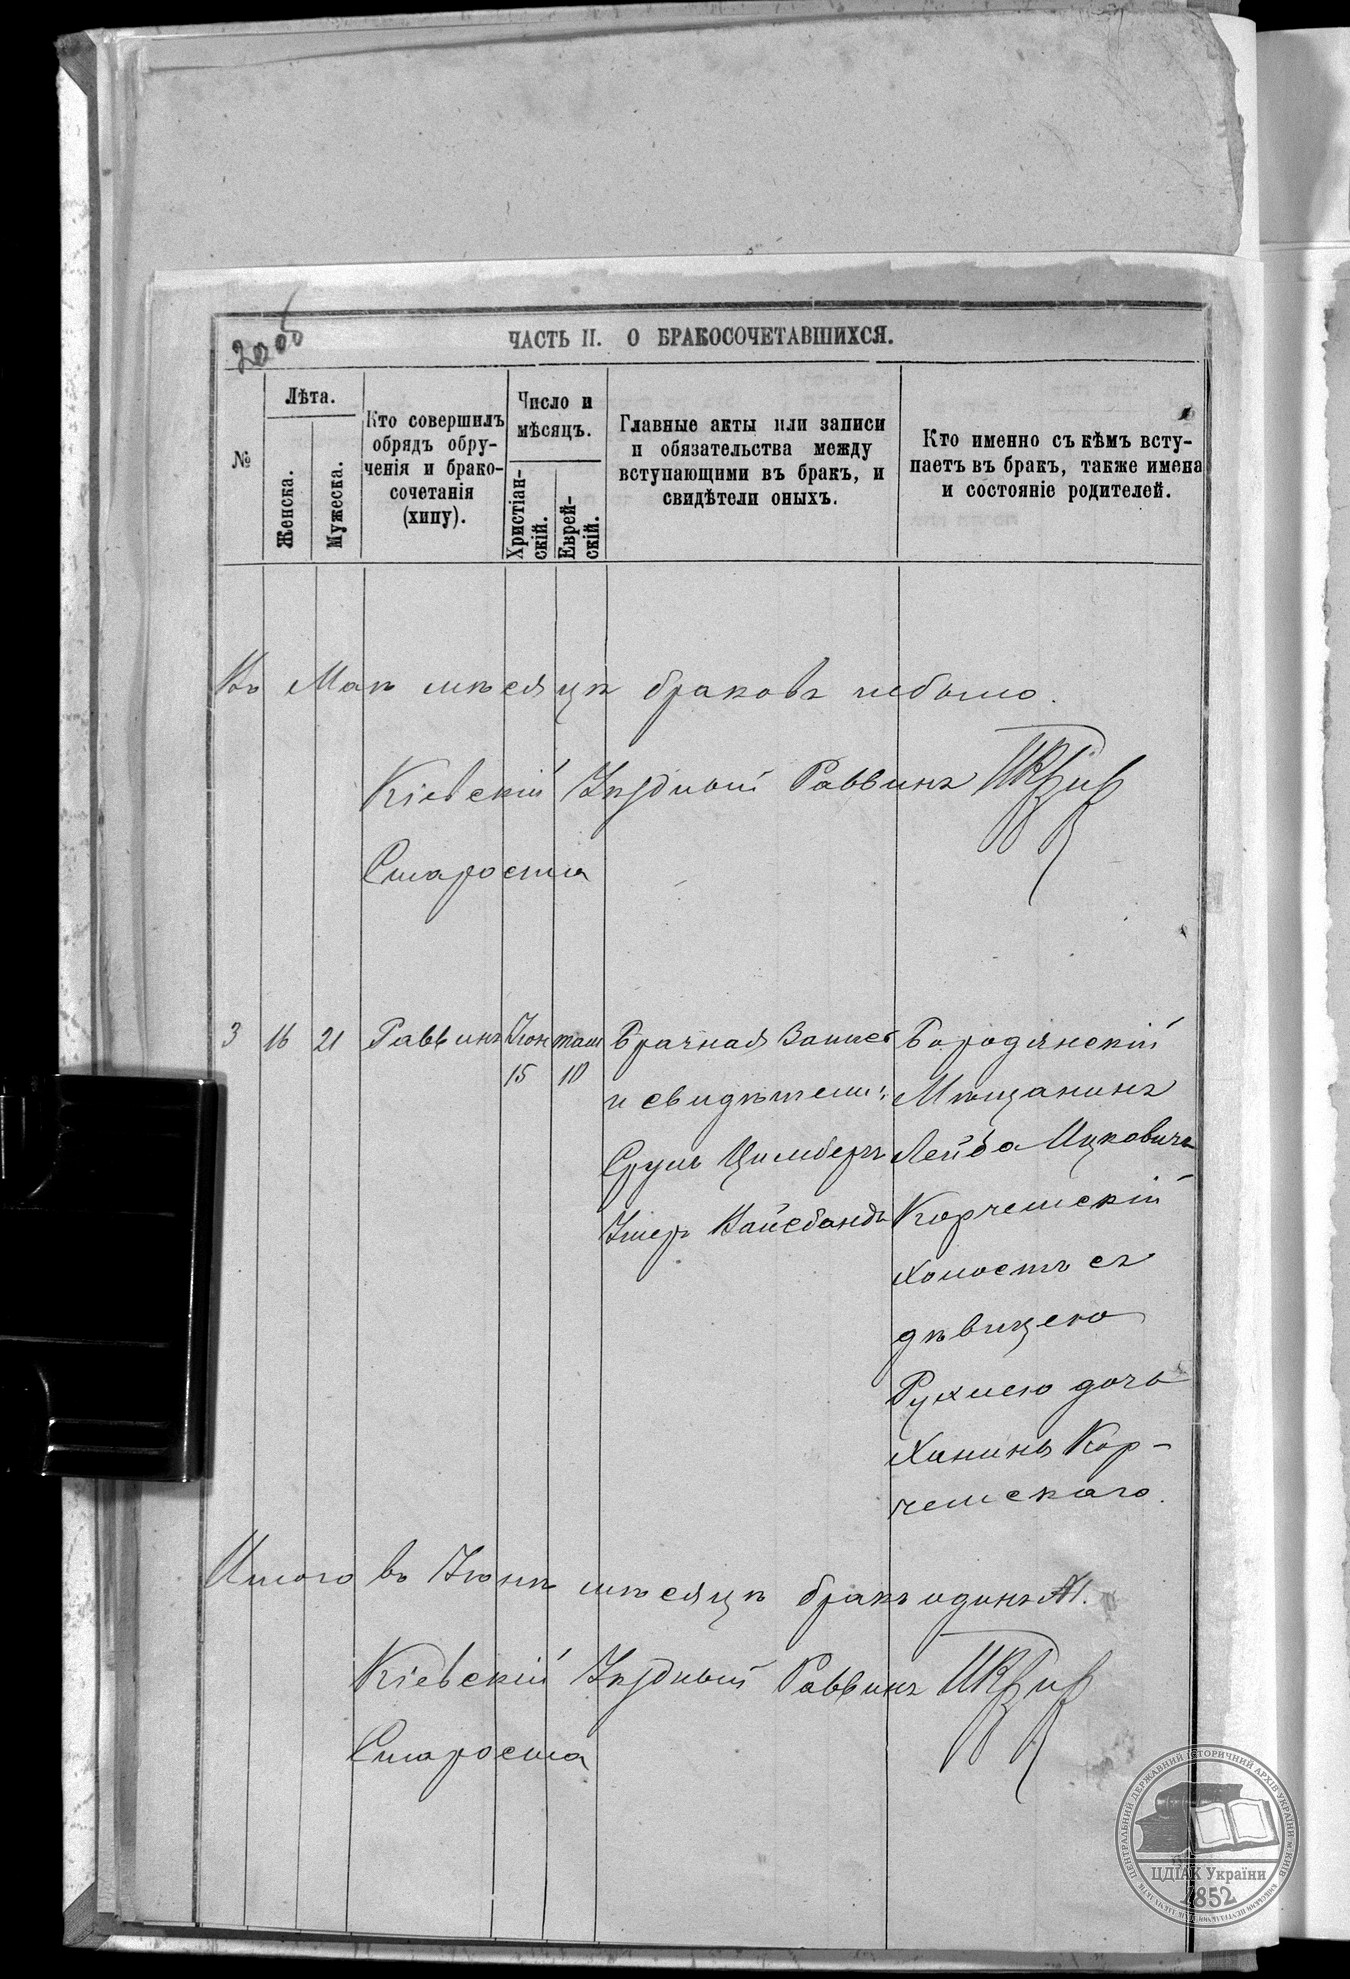 ЧАСТЬ II. О БРАКОСОЧЕТАВШИХСЯ.
№
Лѣта.
Женска.
Мужеска.
Кто совершилъ
обрядъ обру-
ченія и брако-
сочетанія
(хипу).
Число и
мѣсяцъ.
Христіан-
скій.
Еврей-
скій.
Главные акты или записи
и обязательства между
вступающими въ бракъ, и
свидѣтели оныхъ.
Кто именно съ кѣмъ всту-
паетъ въ бракъ, также имена
и состояніе родителей.
Въ Маѣ мѣсяцѣ браковъ небыло.
Кіевскій Уѣздный Раввинъ
Староста
3 16 21 Раввинъ Іюн
15
там
10
Брачная Запись
и свидѣтели:
Сруль Цимберъ
Ушеръ Вайсбандъ
Бородянскій
Мѣщанинъ
Лейба Ицковичъ
Корчемскій
холостъ съ
дѣвицею
Рухлею дочь
Ханинъ Кор-
чемскаго.
Итого въ Іюнѣ мѣсяцѣ бракъ одинъ №1.
Кіевскій Уѣздный Раввинъ
Староста
ЦЕНТРАЛЬНИЙ ДЕРЖАВНИЙ ІСТОРИЧНИЙ АРХІВ УКРАЇНИ м.КИЇВ
ЦДІАК України
1852